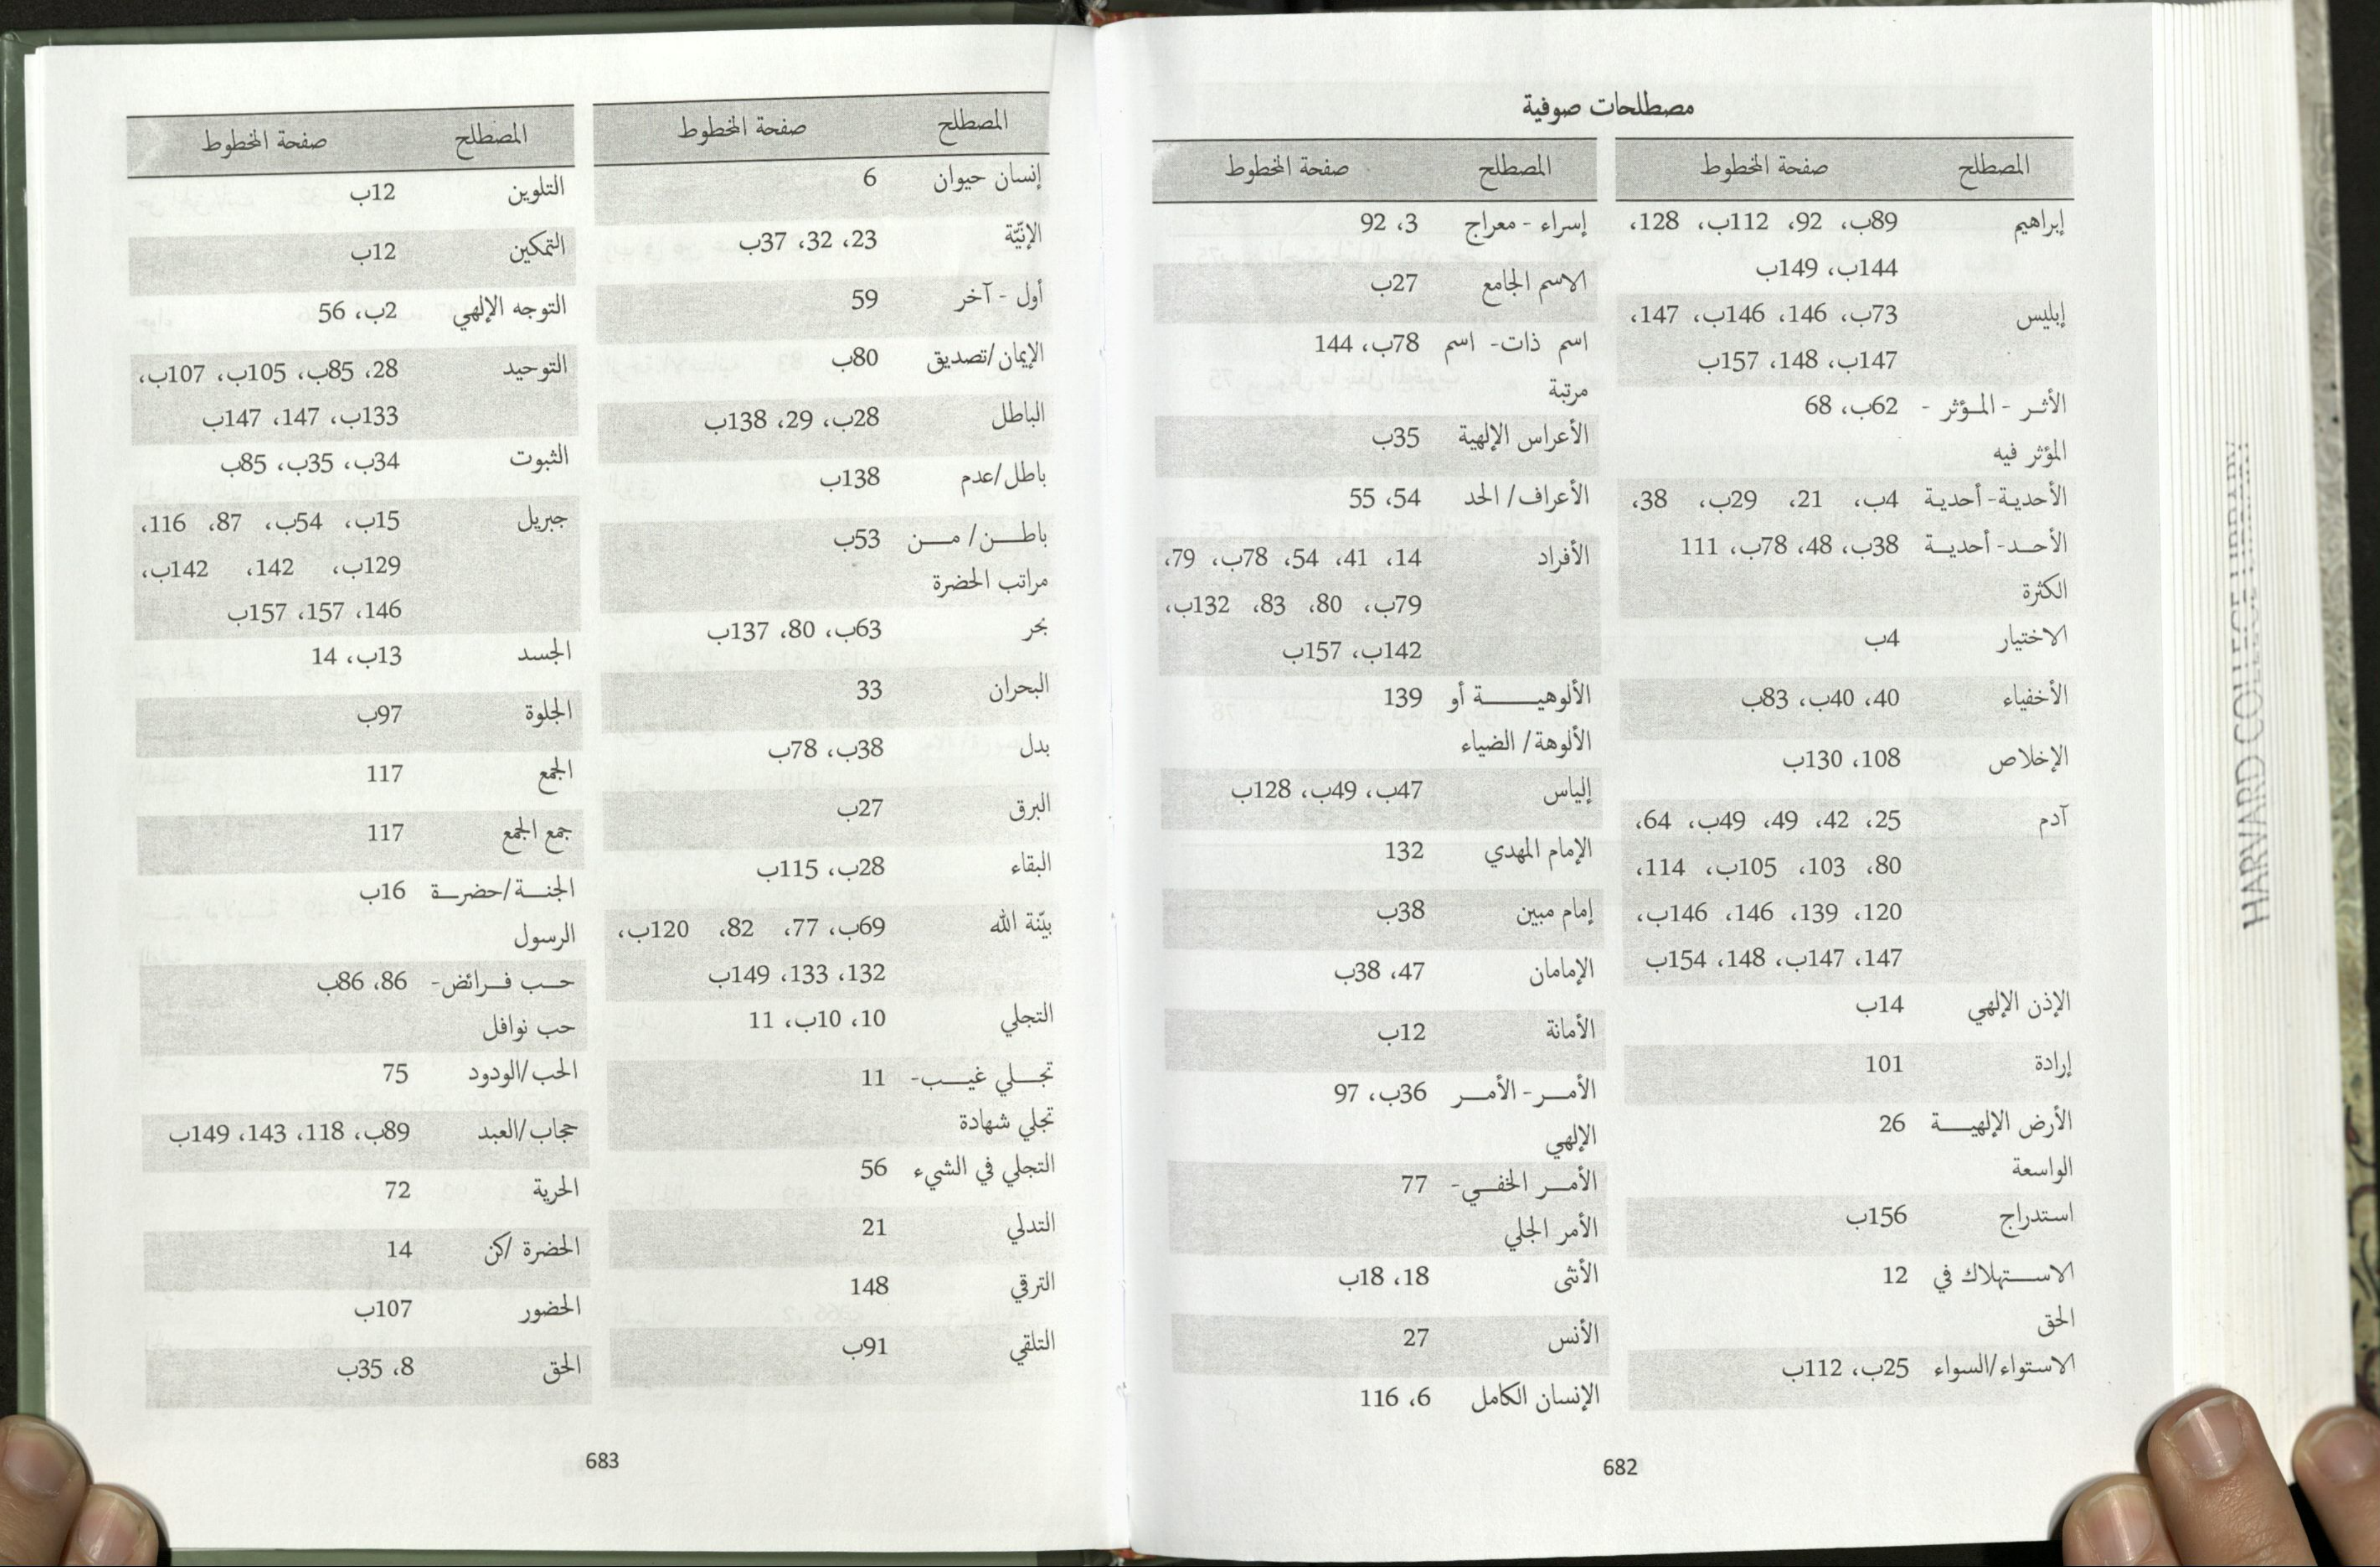 مصطلحات صوفية
المصطلح صفحة المخطوط
إبراهيم 89ب، 92، 112ب، 128،
144ب، 149ب
إبليس 73ب، 146، 146ب، 147،
147ب، 148، 157ب
الأثر - المؤثر - 62ب، 68
المؤثر فيه
الأحدية- أحدية 4ب، 21، 29ب، 38،
الأحد- أحدية 38ب، 48، 78ب، 111
الكثرة
الاختيار 4ب
الأخفياء 40، 40ب، 83ب
الإخلاص 108، 130ب
آدم 25، 42، 49، 49ب، 64،
80، 103، 105ب، 114،
120، 139، 146، 146ب،
147، 147ب، 148، 154ب
الإذن الإلهي 14ب
إرادة 101
الأرض الإلهية 26
الواسعة
استدراج 156ب
الاستهلاك في 12
الحق
الاستواء/السواء 25ب، 112ب
المصطلح صفحة المخطوط
إسراء - معراج 3، 92
الاسم الجامع 27ب
اسم ذات- اسم 78ب، 144
مرتبة
الأعراس الإلهية 35ب
الأعراف/ الحد 54، 55
الأفراد 14، 41، 54، 78ب، 79،
79ب، 80، 83، 132ب،
142ب، 157ب
الألوهية أو 139
الألوهة/ الضياء
إلياس 47ب، 49ب، 128ب
الإمام المهدي 132
إمام مبين 38ب
الإمامان 47، 38ب
الأمانة 12ب
الأمر- الأمر 36ب، 97
الإلهي
الأمر الخفي- 77
الأمر الجلي
الأنثى 18، 18ب
الأنس 27
الإنسان الكامل 6، 116
682
المصطلح صفحة المخطوط
إنسان حيوان 6
الإنيّة 23، 32، 37ب
أول - آخر 59
الإيمان/تصديق 80ب
الباطل 28ب، 29، 138ب
باطل/عدم 138ب
باطن/ من 53ب
مراتب الحضرة
بحر 63ب، 80، 137ب
البحران 33
بدل 38ب، 78ب
البرق 27ب
البقاء 28ب، 115ب
بيّنة الله 69ب، 77، 82، 120ب،
132، 133، 149ب
التجلي 10، 10ب، 11
تجلي غيب- 11
تجلي شهادة
التجلي في الشيء 56
التدلي 21
الترقي 148
التلقي 91ب
المصطلح صفحة المخطوط
التلوين 12ب
التمكين 12ب
التوجه الإلهي 2ب، 56
التوحيد 28، 85ب، 105ب، 107ب،
133ب، 147، 147ب
الثبوت 34ب، 35ب، 85ب
جبريل 15ب، 54ب، 87، 116،
129ب، 142، 142ب،
146، 157، 157ب
الجسد 13ب، 14
الجلوة 97ب
الجمع 117
جمع الجمع 117
الجنة/حضرة 16ب
الرسول
حب فرائض- 86، 86ب
حب نوافل
الحب/الودود 75
حجاب/العبد 89ب، 118، 143، 149ب
الحرية 72
الحضرة /كن 14
الحضور 107ب
الحق 8، 35ب
683
HARVARD COLLEGE LIBRARY